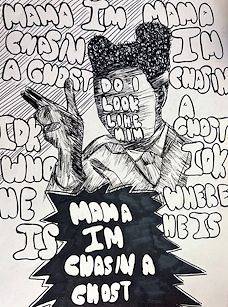 MAMA I'M
CHASIN
A GHOST
IDK
WHO
HE
IS
MAMA
IM
CHASIN
A
GHOST
IDK
WHERE
HE IS
DO I
LOOK
LIKE
HIM
MAMA
IM
CHASIN A
GHOST